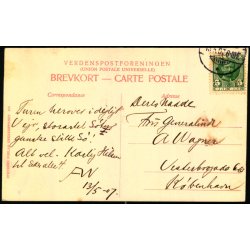 VERDENSPOSTFORENINGEN
(UNION POSTALE UNIVERSELLE)
BREVKORT — CARTE POSTALE
Correspondance
Adresse
Turen herover i dejligt
Vejr, storartet
ganske stille Sø!
Alt vel. Kærlig Hilsen
til Eder alle!
AW
13/5-07.
Deres Naade
Fru Generalinde
A Wagner
Vesterbrogade
København